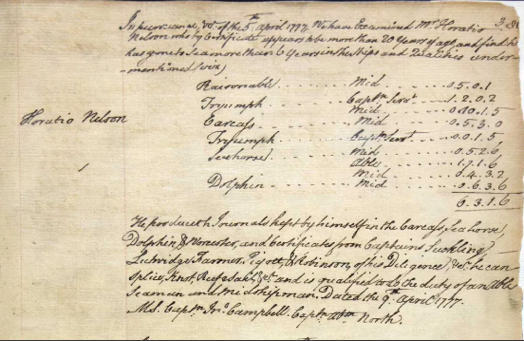 In pursuance, &c of the 5th April 1777, We have Examined Mr Horatio
Nelson who by Certificate appears to be more than 20 Years of age, and find he
has gone to Sea more than 6 Years in the Ships and Qualities under-
mentioned (vizt)
Raisonable Mid 0.5.0.1
Tryumph Captns Servt 1.2.0.2
Mid 0.10.1.5
Carcass Mid 0.5.3.0
Tryumph Captns Servt 0.0.1.5
Seahorse Mid 0.5.2.6
Able 1.7.1.6
Mid 0.4.3.2
Dolphin Mid 0.6.3.6
6.3.1.6
Horatio Nelson
He produceth Journals kept by himself in the Carcass, Seahorse,
Dolphin, & Worcester, and Certificates from Captains Suckling,
Lutwidge, Farmer, Pigott, & Robinson, of his Diligence, &c. he can
Splice, Knot, Reef a Sail, &c. and is qualified to do the duty of an Able
Seaman and Midshipman. Dated the 9th April 1777.
M.S. Captn Jno Campbell. Captn Abm North.